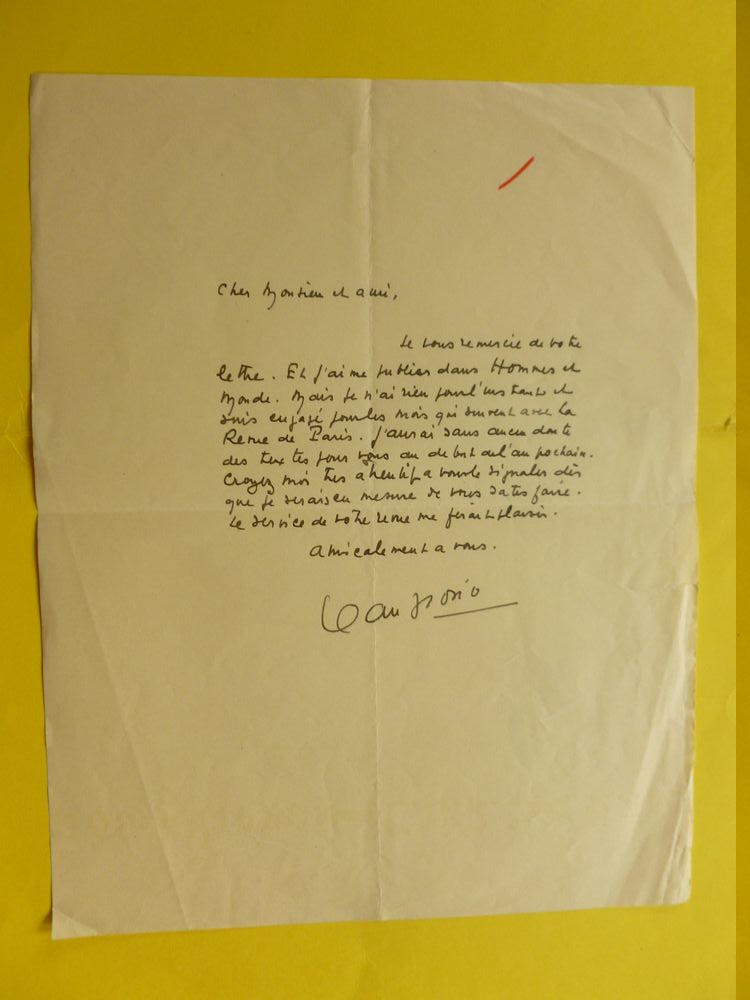 Cher Monsieur et ami,
Je vous remercie de votre
lettre. Et j'aime publier dans Hommes et
Monde. Mais je n'ai rien pour l'instant et
suis engagé pour les mois qui suivent avec la
Revue de Paris. J'aurai sans aucun doute
des textes pour vous au debut de l'an prochain.
Croyez moi tres attentif a vous le signaler dès
que je serais en mesure de vous satisfaire.
Le service de votre revue me ferait plaisir.
Amicalement a vous.
Jean Giono